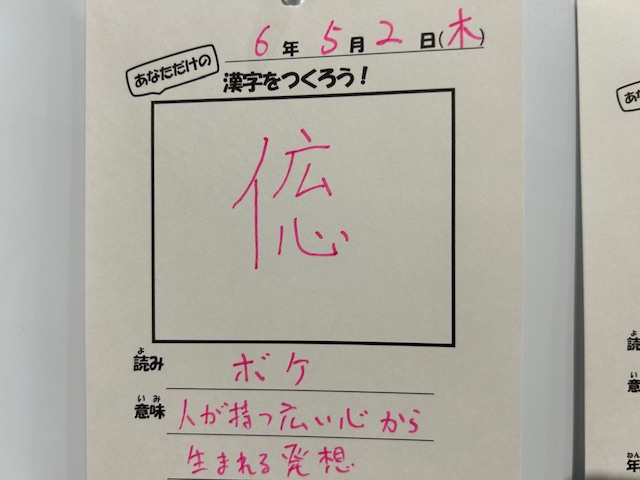 6年5月2日(木)
あなただけの
漢字をつくろう！
読み ボケ
意味 人が持つ広い心から
生まれる発想